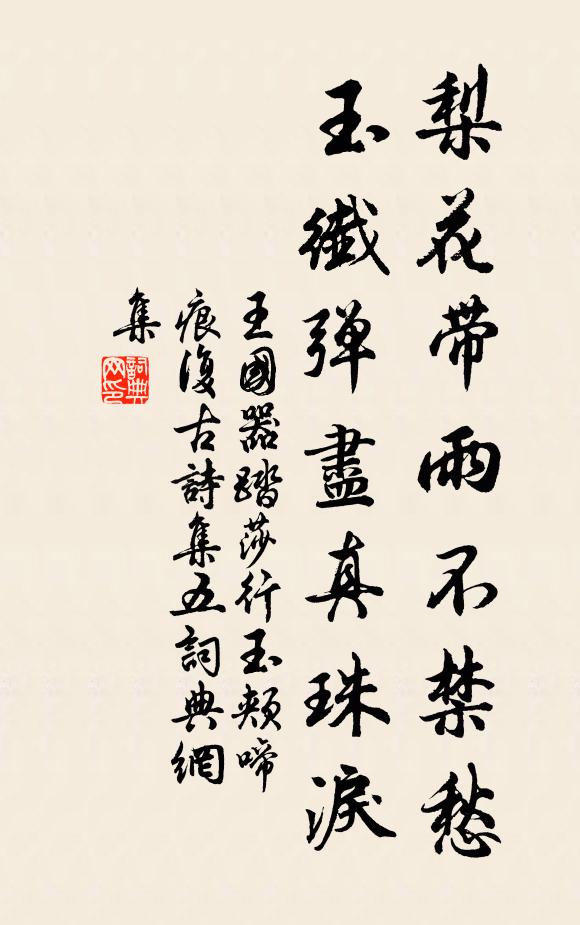 梨花带雨不禁愁
玉纖弹盡真珠淚
王國器踏莎行玉頰啼
痕復古詩集五詞典網
集
詞典
网印